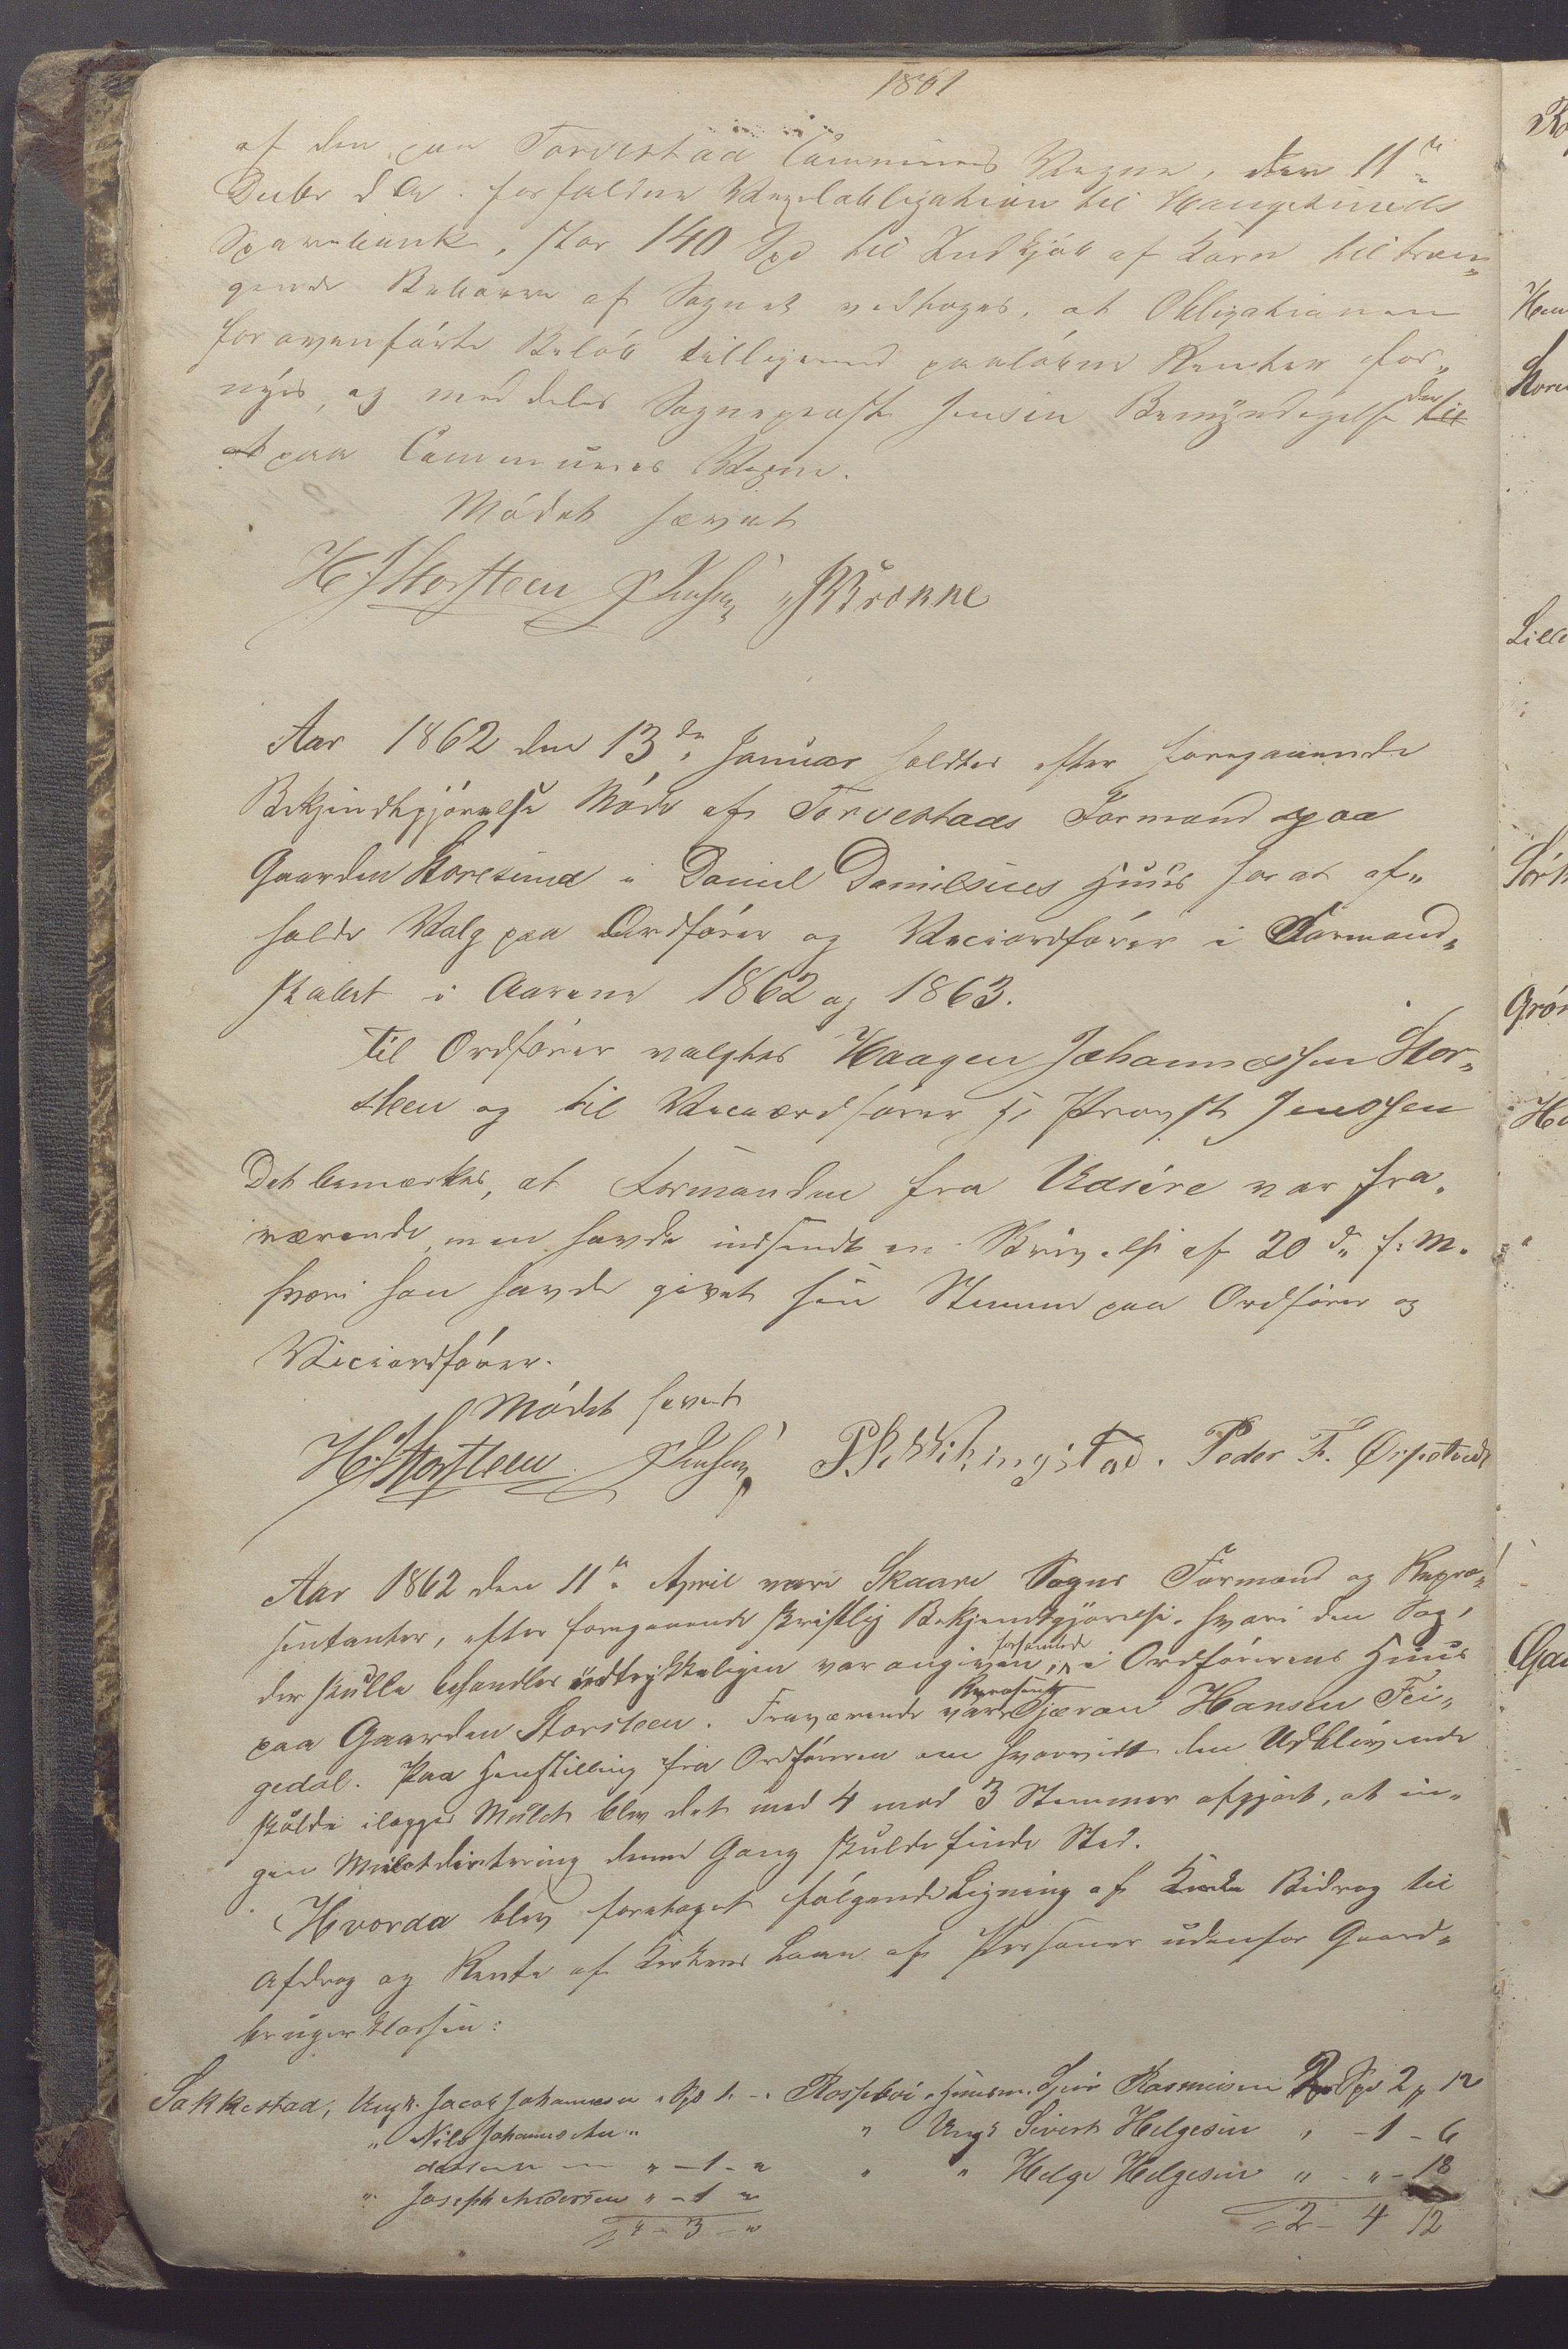 1861
af den, paa Torvestad Communes Vegne, den 11te
Decbr d. A. forfaldne Vexelobligation til Haugesunds
Sparebank, stor 140 Spd til Indkjøb af Korn til træn„
gende Beboere af Sognet vedtoges, at Obligationen
for ovenførte Beløb tilligemed paaløbne Renter for„
nyes, og meddeles Sogneprest Jensen Bemyndigelse der til
at paa Communens Vegne.
Mødet hævet
H. J. Storsteen Jensen Brønne
Aar 1862 den 13de Januar holdtes efter foregaaende
Bekjendtgjørelse Møde af Torvestads Formænd paa
Gaarden Storesund i Daniel Danielsens Huus for at af„
holde Valg paa Ordfører og Viceordfører i Formand„
skabet i Aarene 1862 og 1863.
Til Ordfører valgtes Haagen Johannessen Stor„
steen og til Viceordfører Hr Provst Jenssen
Det bemærkes, at Formanden fra Udsire var fra„
værende, men havde indsendt en Skrivelse af 20de f. M.
hvori han havde givet sin Stemme paa Ordfører og
Viceordfører.
Mødet hævet
H. J. Storsteen. Jensen P. P. Wikingstad. Peder T. Ørpetvedt
Aar 1862 den 11te April vare Skaare Sogns Formænd og Repræ„
sentanter, efter foregaaende skriftlig Bekjendtgjørelse, hvori den Sag,
der skulle behandles udtrykkeligen var angiven, forsamlede i Ordførerens Huus
paa Gaarden Storsteen. Fraværende vare Repræsent Sjøran Hansen Fei„
gedal. Paa Henstilling fra Ordføreren om hvorvidt den Udblivende
skulde ilægges Mulct blev det med 4 mod 3 Stemmer afgjort, at in„
gen Mulctdictering denne Gang skulde finde Sted.
Hvorda blev foretaget følgende Ligning af Kirke Bidrag til
Afdrag og Rente af Kirkens Laan af Personer udenfor Gaard„
brugerklassen:
Sakkestad, Ungk. Jacob Johannesen „ Spd 1. - „ Rossebø „ Huusm. Sjur Rasmusen Spd 2 „ 12
„ Nils Johannes An„ „ Ungk Sivert Helgesen „ - 1 - 6
dersen „ - 1 - „ „ „ Helge Helgesen „ - „ - 18
„ Joseph Andersen „ - 1 „
„ - 3 - „ 2 - 4 12